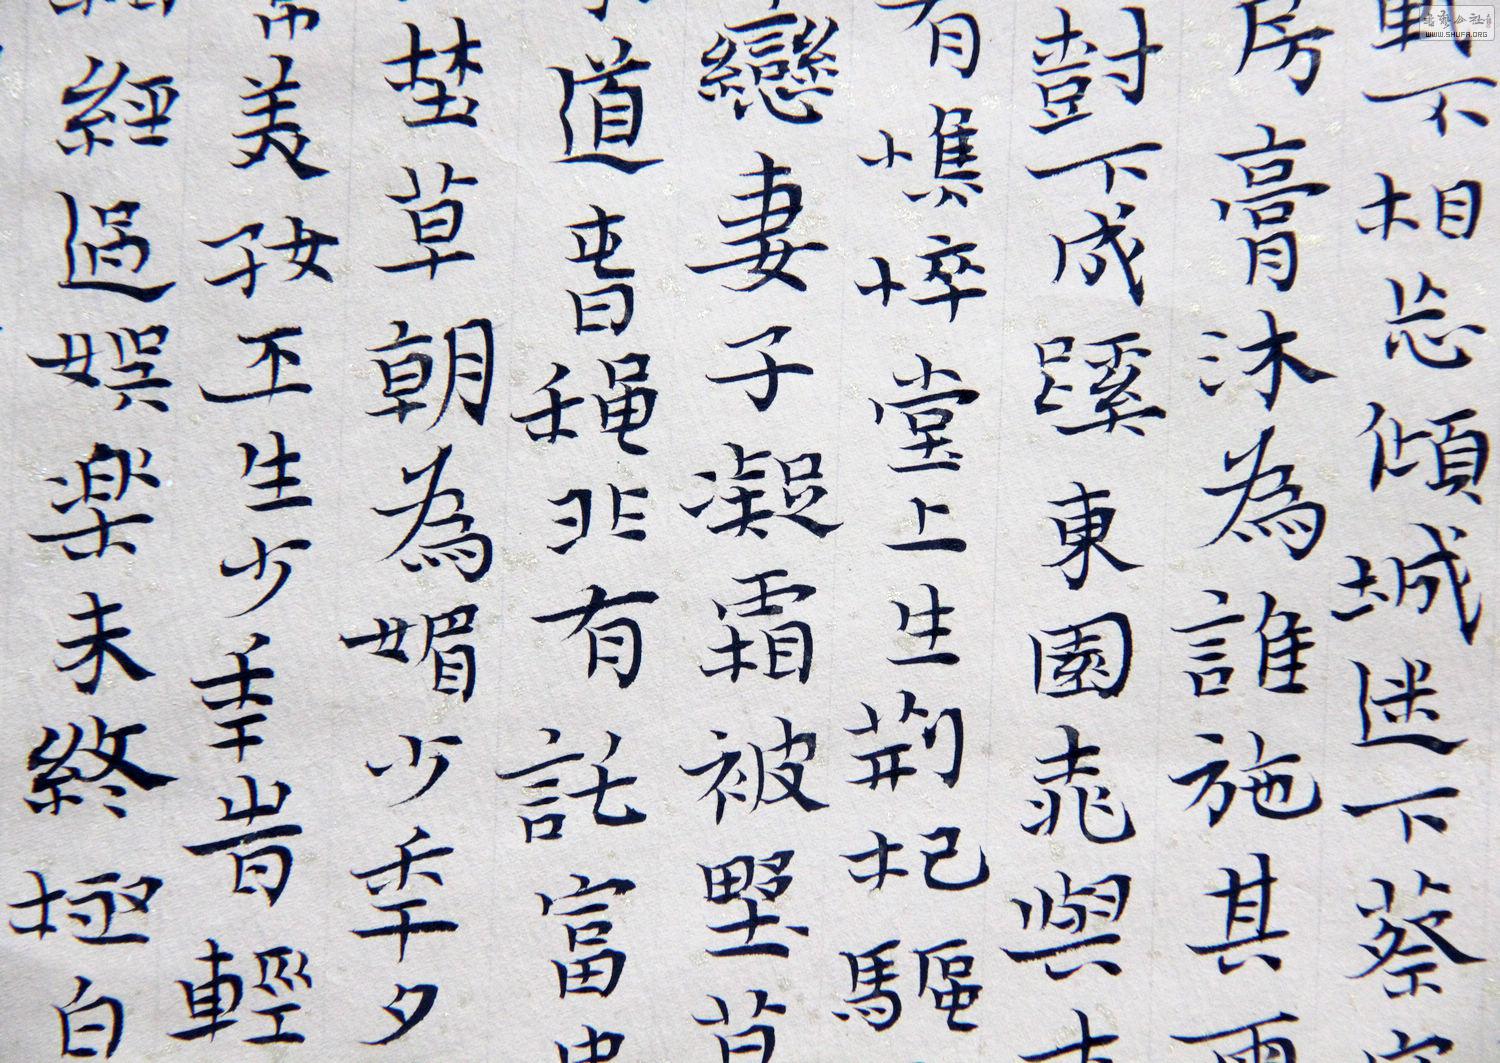 不相忘傾城迷下蔡
房膏沐為誰施其雨
樹下成蹊東園桃與
有憔悴堂上生荊杞驅馬
戀妻子凝霜被野草
道春龜非有託富
埜草朝為媚少年夕
常美好平生少年時輕
經過娛樂未終極白
WWW.SHUFA.ORG